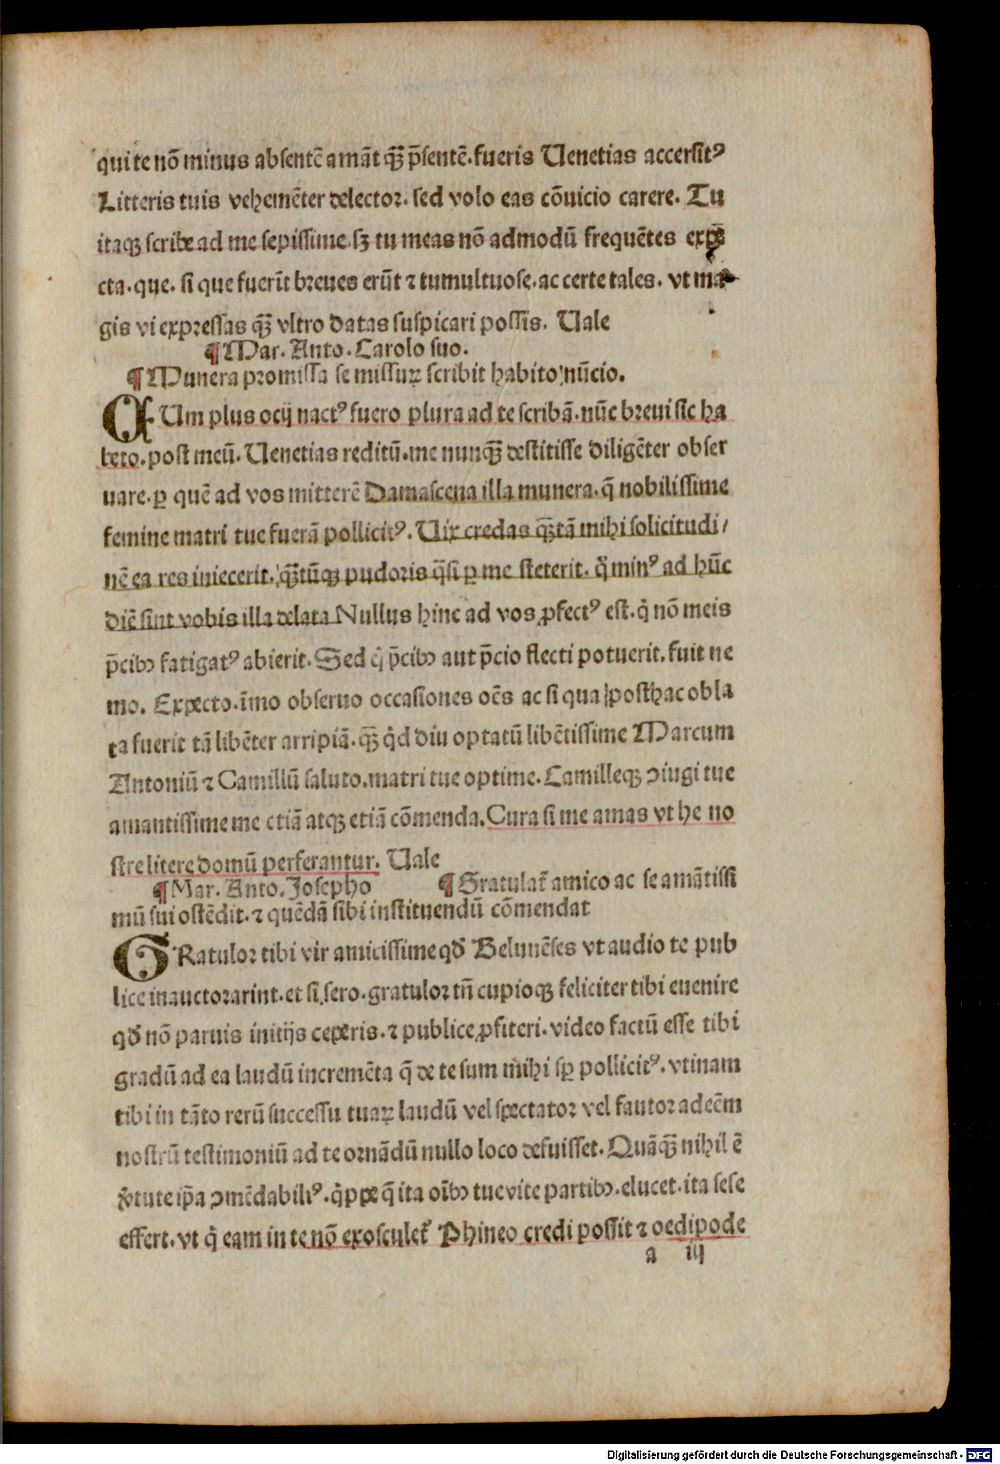 qui te nō minus absentē amāt qȝ̄ p̄sentē. fueris Uenetias accersitꝰ
Litteris tuis vehemēter delector. sed volo eas cōuicio carere. Tu
itaqȝ scribe ad me sepissime. sȝ tu meas nō admodū frequētes expe
cta. que. si que fuerīt breues erūt ⁊ tumultuose. ac certe tales. vt ma
gis vi expressas qȝ̄ vltro datas suspicari possis. Uale
¶ Mar. Anto. Carolo suo.
¶ Munera promissa se missuꝝ scribit habito nūcio.
CUm plus ocij nactꝰ fuero plura ad te scribā. nūc breui sic ha
beto. post meū. Uenetias reditū. me nunqȝ̄ destitisse diligēter obser
uare. ꝑ quē ad vos mitterē Damascena illa munera. q̄ nobilissime
femine matri tue fuerā pollicitꝰ. Uix credas qȝ̄tā mihi solicitudi/
nē ea res iniecerit. qȝ̄tūqȝ pudoris q̄si ꝑ me steterit. q̊ minꝰ ad hūc
diē sint vobis illa delata Nullus hinc ad vos ꝓfectꝰ est. q̇ nō meis
p̄cibꝫ fatigatꝰ abierit. Sed q̇ p̄cibꝫ aut p̄cio flecti potuerit. fuit ne
mo. Expecto. īmo obseruo occasiones oēs ac si qua posthac obla
ta fuerit tā libēter arripiā. qȝ̄ q̇d diu optatū libētissime Marcum
Antoniū ⁊ Camillū saluto. matri tue optime. Camilleqȝ ꝯiugi tue
amantissime me etiā atqȝ etiā cōmenda. Cura si me amas vt he no
stre litere domū perferantur. Uale
¶ Mar. Anto. Josepho ¶ Gratulat᷑ amico ac se amātissi
mū sui ostēdit. ⁊ quēdā sibi instituendū cōmendat
GRatulor tibi vir amicissime qđ Belunēses vt audio te pub
lice inauctorarint. et si sero. gratulor tn̄ cupioqȝ feliciter tibi euenire
qđ nō paruis initijs ceperis. ⁊ publice ꝓfiteri. video factū esse tibi
gradū ad ea laudū incremēta q̄ de te sum mihi sꝑ pollicitꝰ. vtinam
tibi in tāto rerū successu tuaꝝ laudū vel spectator vel fautor adeēm
nostrū testimoniū ad te ornādū nullo loco defuisset. Quāqȝ̄ nihil ē
v̓tute ip̄a ꝯmēdabiliꝰ. q̇ppe q̄ ita oībꝫ tue vite partibꝫ. elucet. ita sese
effert. vt q̇ eam in te nō exosculet᷑ Phineo credi possit ⁊ oedipode
a iij
Digitalisierung gefördert durch die Deutsche Forschungsgemeinschaft - DFG